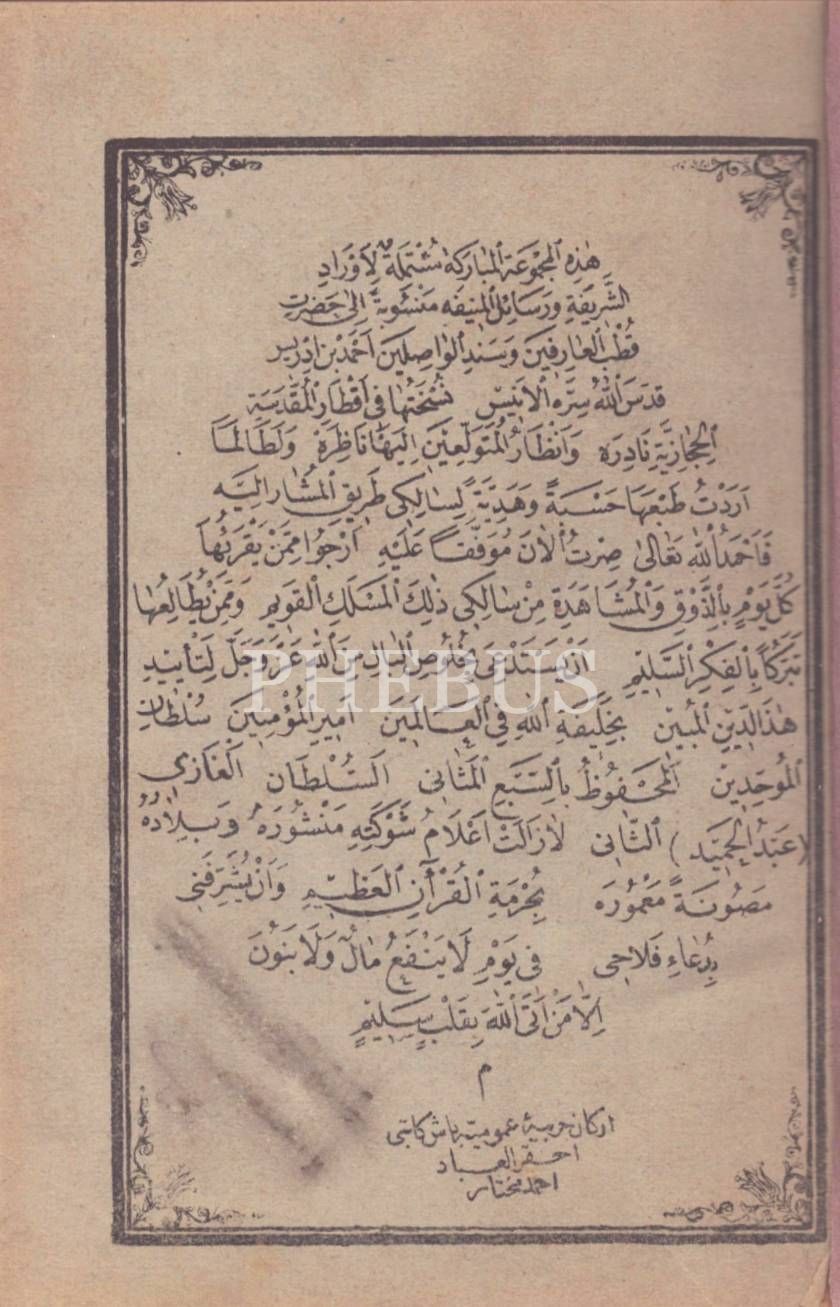 هٰذِهِ الْمَجْمُوعَةِ الْمُبَارَكَةُ مُشْتَمِلَةٌ لِاَوْرَادِ
الشَّرِيفَةِ وَرَسَائِلِ الْمُنِيفَه مَنْسُوبَةً اِلٰى حَضْرَتِ
قُطْبِ الْعَارِفِينَ وَسَنَدِ الْوَاصِلِينَ اَحْمَدْ بْنِ اِدْرِيسَ
قَدَّسَ اللّٰهُ سِرَّهُ الْاَنِيسَ نُسْخَتُهَا فِي اَقْطَارِ الْمُقَدَّسَةِ
الْحِجَازِيَّةِ نَادِرَه وَاَنْظَارُ الْمُتَوَلِّعِينَ اِلَيْهَا نَاظِرَةِ وَلَطَالَمَا
اَرَدْتُ طَبْعَهَا حَسْبَةً وَهَدِيَّةً لِسَالِكِي طَرِيقِ الْمُشَارِ اِلَيْه
فَاَحْمَدُ اللّٰهَ تَعَالٰى صِرْتُ الْاٰنَ مُوَفَّقًا عَلَيْهِ اَرْجُوا مِمَّنْ يَقْرَئُهَا
كُلَّ يَوْمٍ بِالذَّوْقِ وَالْمُشَاهَدَةِ مِنْ سَالِكِي ذٰلِكَ الْمَسْلَكِ الْقَوِيمِ وَمِمَّنْ يُطَالِعُهَا
تَبَرُّكًا بِالْفِكْرِ السَّلِيْمِ اَنْ يَسْتَدْعِيَ بِخُلُوصِ الْبَالِ مِنَ اللّٰهِ عَزَّ وَجَلَّ لِتَأْيِيدِ
هٰذَا الدِّينِ الْمُبِينِ بِخَلِيفَةِ اللّٰهِ فِي الْعَالَمِينَ اَمِيرِ الْمُؤْمِنِينَ سُلْطَانِ
الْمُوَحِّدِينَ الْمَحْفُوظُ بِالسَّبْعِ الْمَثَانِي السُّلْطَانِ الْغَازِي
(عَبْدُ الْحَمِيدِ) الثَّانِي لَازَالَتْ اَعْلَامُ شَوْكَتِهِ مَنْشُورَهُ وَبِلَادُهُ
مَصُونَةً مَعْمُورَه بِحُرْمَةِ الْقُرْآنِ الْعَظِيمِ وَاَنْ يُشَرِّفَنِي
بِدُعَاءِ فَلَاحِي فِي يَوْمِ لَا يَنْفَعُ مَالٌ وَلَا بَنُونَ
اِلَّا مَنْ اَتَى اللّٰهَ بِقَلْبٍ سَلِيمٍ
م
اركان حربيۀ عموميه باش كاتبى
احقر العباد
احمد مختار
PHEBUS